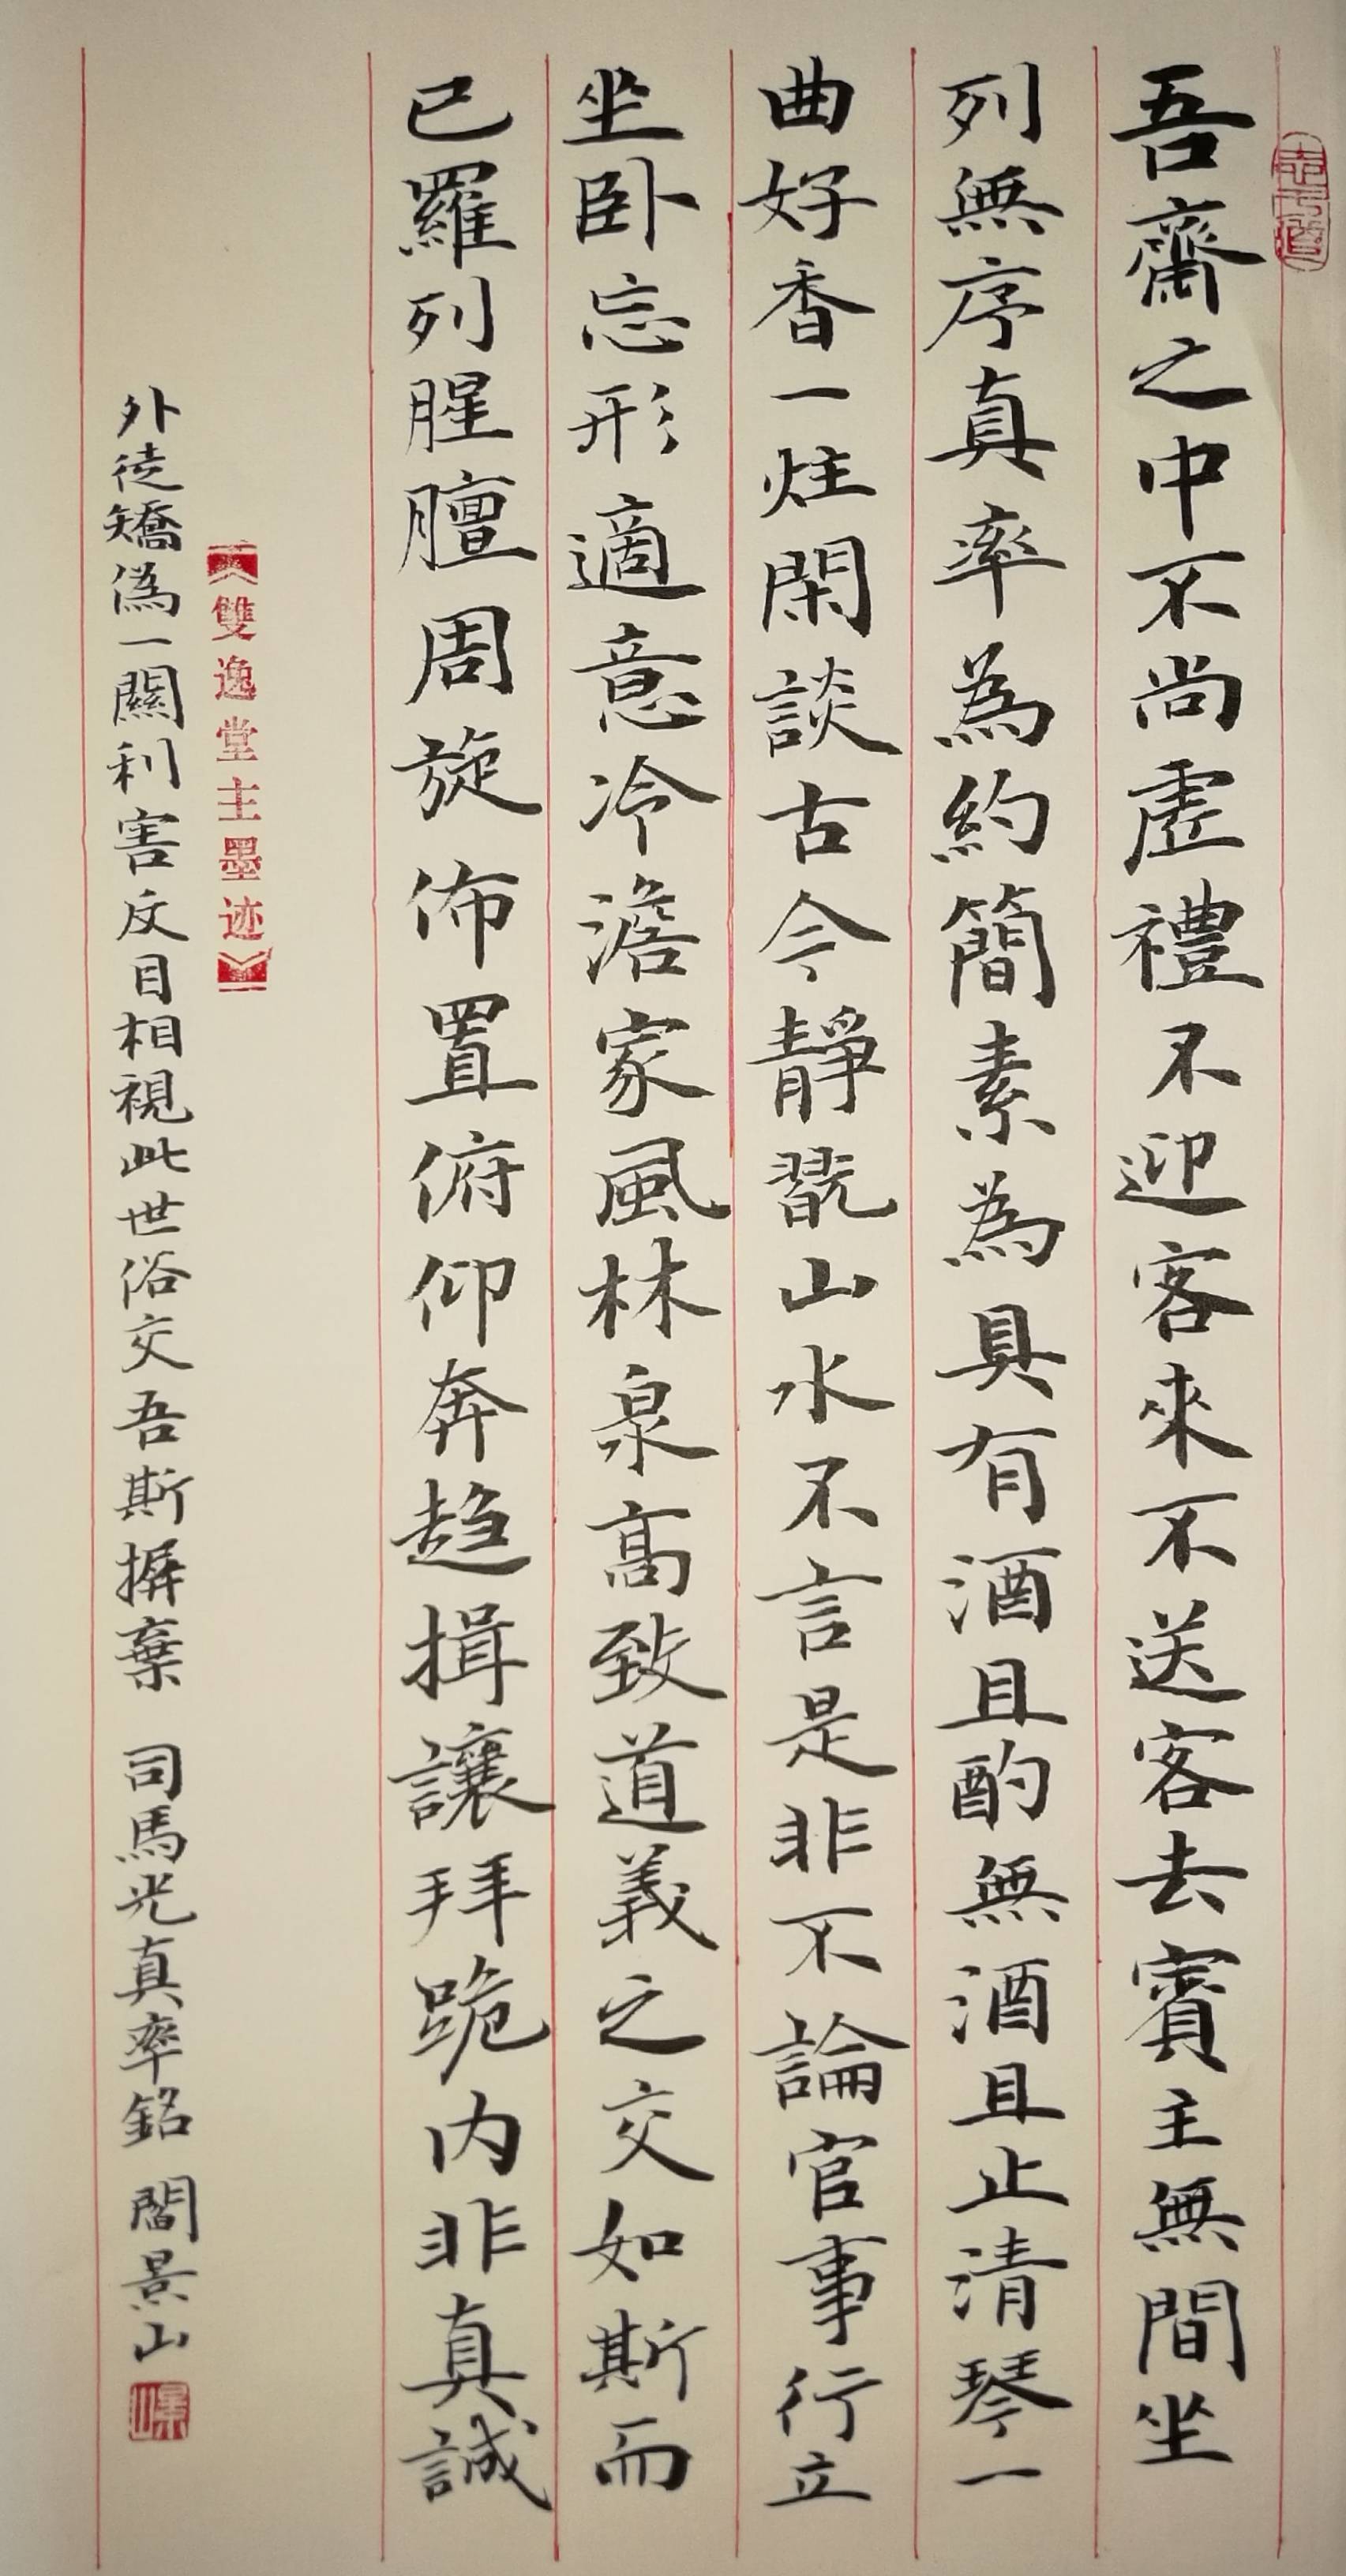 吾齋之中不尚虛禮不迎客來不送客去賓主無間坐
列無序真率為約簡素為具有酒且酌無酒且止清琴一
曲好香一炷閑談古今靜翫山水不言是非不論官事行立
坐卧忘形適意冷澹家風林泉高致道義之交如斯而
已羅列腥膻周旋佈置俯仰奔趋揖讓拜跪内非真誠
【雙逸堂主墨迹】
外徒矯偽一關利害反目相視此世俗交吾斯摒棄 司馬光真率銘 閻景山